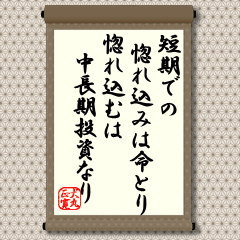 短期での
惚れ込みは命とり
惚れ込むは
中長期投資なり